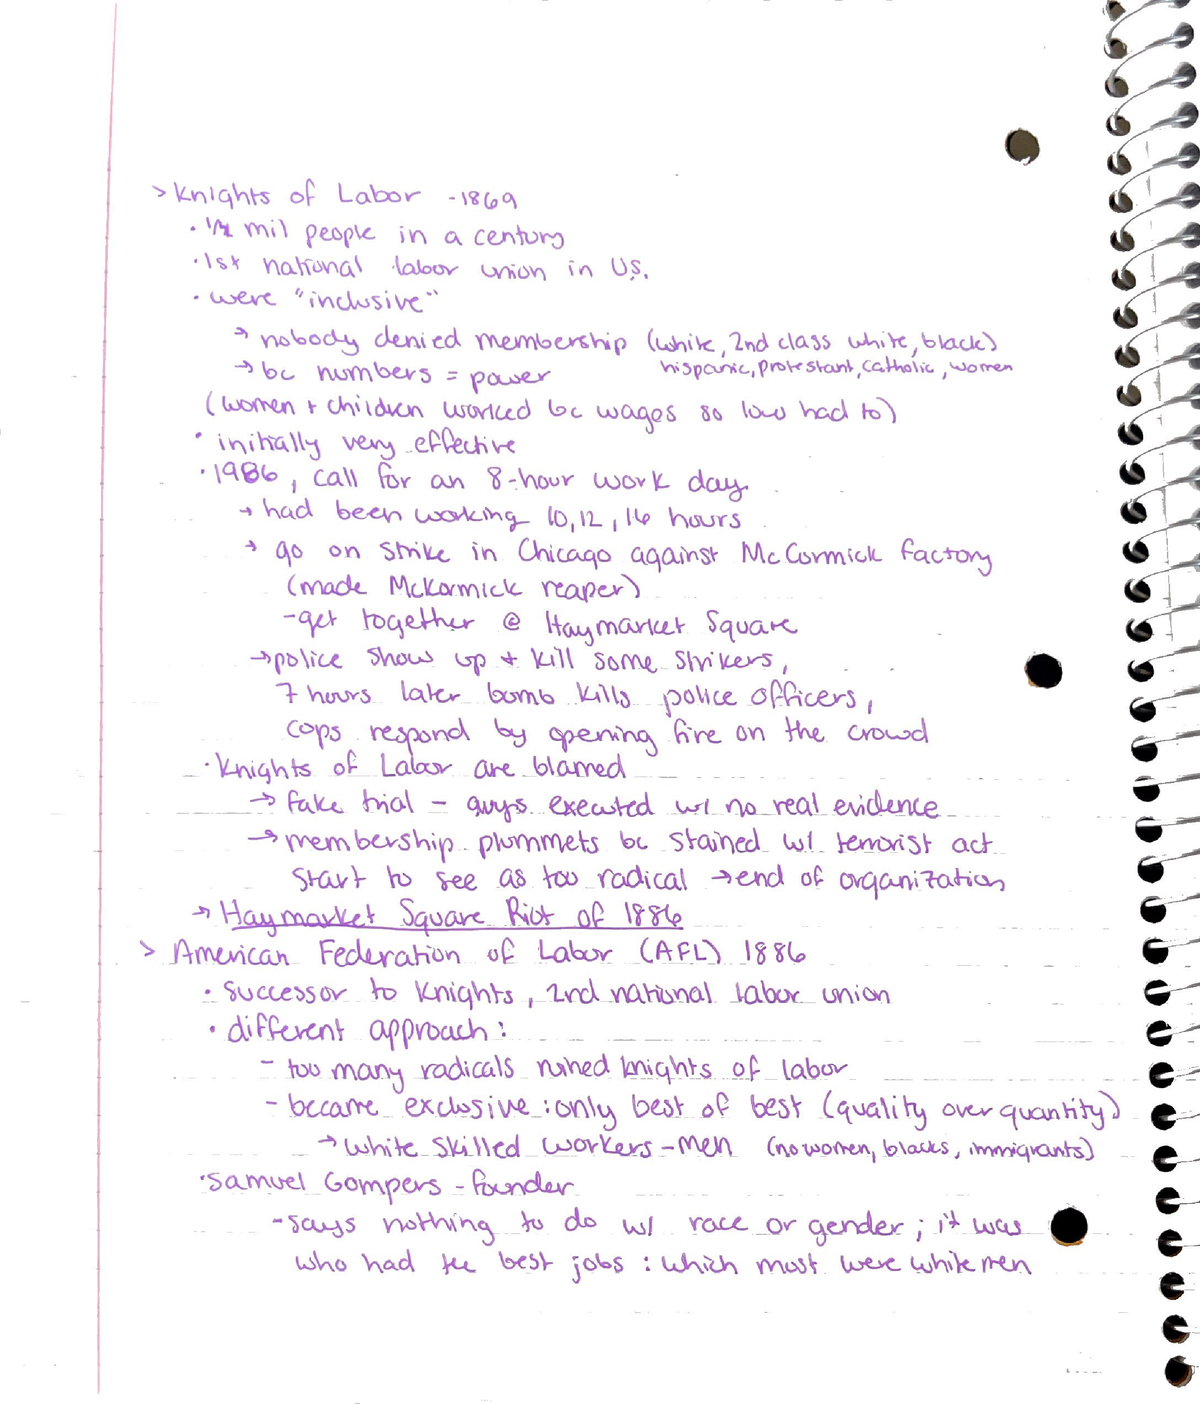 > Knights of Labor - 1869
· 1/2 mil people in a century
· 1st national labor union in U.S.
· were "inclusive"
→ nobody denied membership (white, 2nd class white, black)
hispanic, protestant, catholic, women
→ bc numbers = power
(women + children worked bc wages so low had to)
· initially very effective
· 1986, call for an 8-hour work day
→ had been working 10, 12, 16 hours
→ go on strike in Chicago against McCormick factory
(made McKormick reaper)
- get together @ Haymarket Square
→ police show up + kill some strikers,
7 hours later bomb kills police officers,
cops respond by opening fire on the crowd
· Knights of Labor are blamed
→ fake trial - guys executed w/ no real evidence
→ membership plummets bc stained w/ terrorist act
start to see as too radical → end of organization
→ Haymarket Square Riot of 1886
> American Federation of Labor (AFL) 1886
· successor to Knights, 2nd national labor union
· different approach:
- too many radicals ruined knights of labor
- became exclusive: only best of best (quality over quantity)
→ white skilled workers - men (no women, blacks, immigrants)
· Samuel Gompers - founder
- says nothing to do w/ race or gender; it was
who had the best jobs: which most were white men